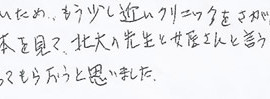 いため、もう少し近いクリニックをさが
本を見て、北大の先生と女医さんと言う
ってもらおうと思いました。